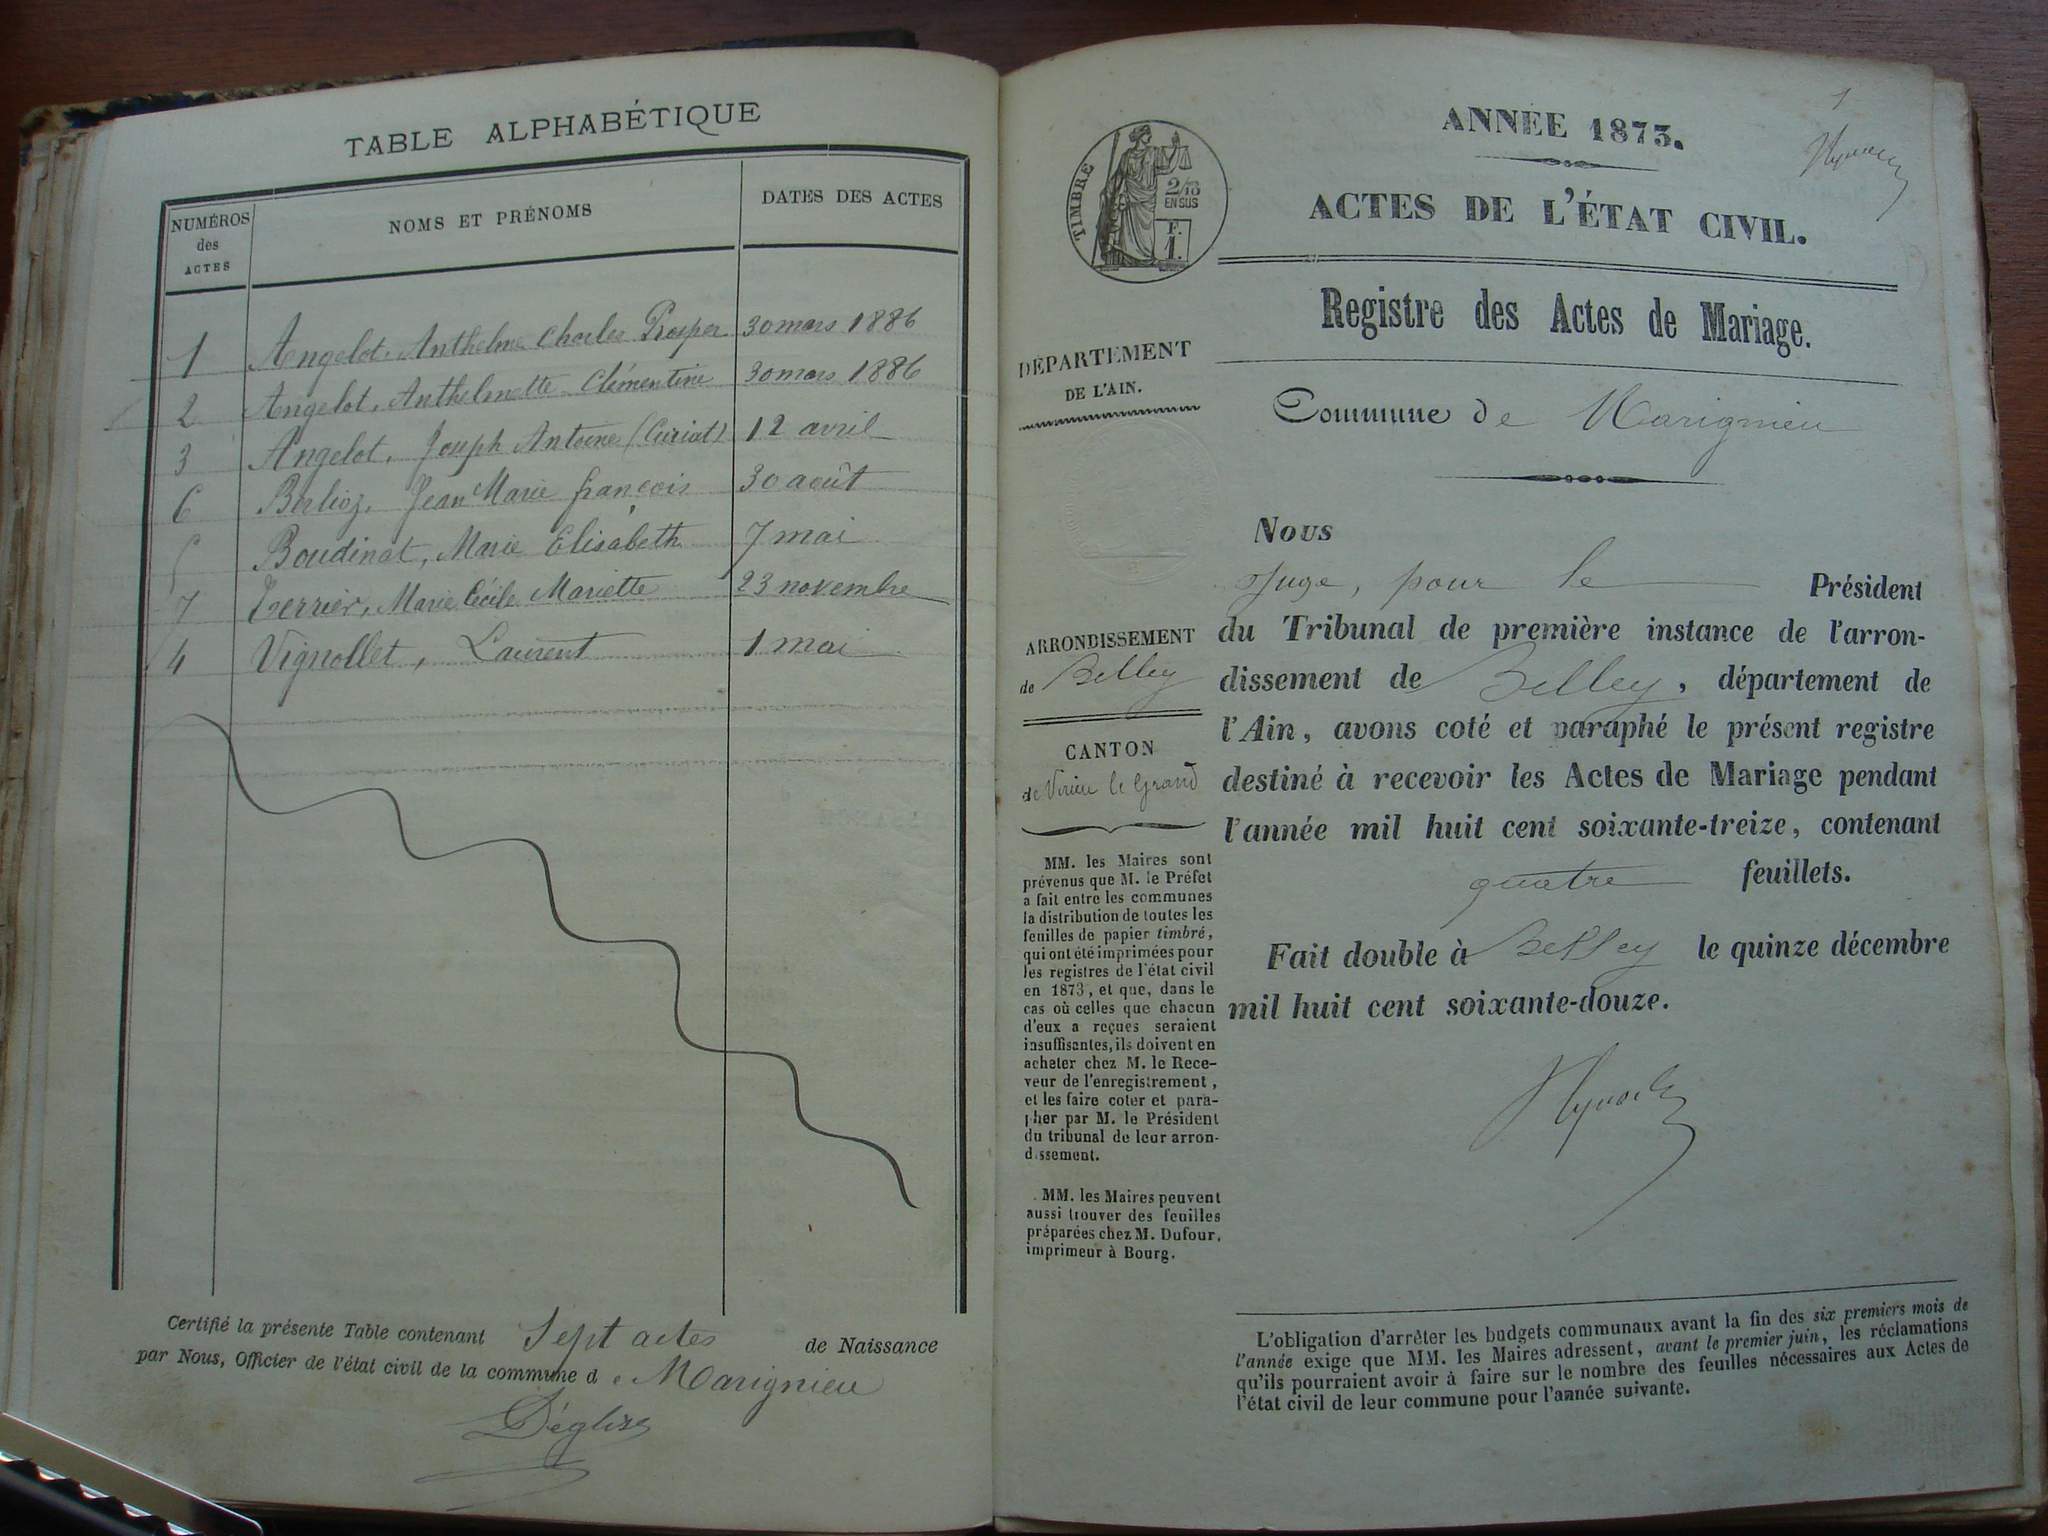 TABLE ALPHABÉTIQUE
NUMÉROS des ACTES
NOMS ET PRÉNOMS
DATES DES ACTES
1 Angelot, Anthelme Charles Prosper 30 mars 1886
2 Angelot, Anthelmette Clémentine 30 mars 1886
3 Angelot, Joseph Antoine (Curiat) 12 avril
6 Berlioz, Jean Marie françois 30 août
5 Boudinat, Marie Elisabeth 7 mai
7 Terrier, Marie Cécile Mariette 23 novembre
4 Vignollet, Laurent 1 mai
Certifié la présente Table contenant Sept actes de Naissance
par Nous, Officier de l'état civil de la commune de Marignieu
1
TIMBRE
2/10
EN SUS
F.
1.
ANNÉE 1873.
ACTES DE L'ÉTAT CIVIL.
Registre des Actes de Mariage.
DÉPARTEMENT
DE L'AIN.
Commune de Marignieu
Nous
Juge, pour le Président
du Tribunal de première instance de l'arron-
dissement de Belley, département de
l'Ain, avons coté et paraphé le présent registre
destiné à recevoir les Actes de Mariage pendant
l'année mil huit cent soixante-treize, contenant
quatre feuillets.
Fait double à Belley le quinze décembre
mil huit cent soixante-douze.
ARRONDISSEMENT
de Belley
CANTON
de Virieu le Grand
MM. les Maires sont
prévenus que M. le Préfet
a fait entre les communes
la distribution de toutes les
feuilles de papier timbré,
qui ont été imprimées pour
les registres de l'état civil
en 1873, et que, dans le
cas où celles que chacun
d'eux a reçues seraient
insuffisantes, ils doivent en
acheter chez M. le Rece-
veur de l'enregistrement,
et les faire coter et para-
pher par M. le Président
du tribunal de leur arron-
dissement.
MM. les Maires peuvent
aussi trouver des feuilles
préparées chez M. Dufour,
imprimeur à Bourg.
L'obligation d'arrêter les budgets communaux avant la fin des six premiers mois de
l'année exige que MM. les Maires adressent, avant le premier juin, les réclamations
qu'ils pourraient avoir à faire sur le nombre des feuilles nécessaires aux Actes de
l'état civil de leur commune pour l'année suivante.